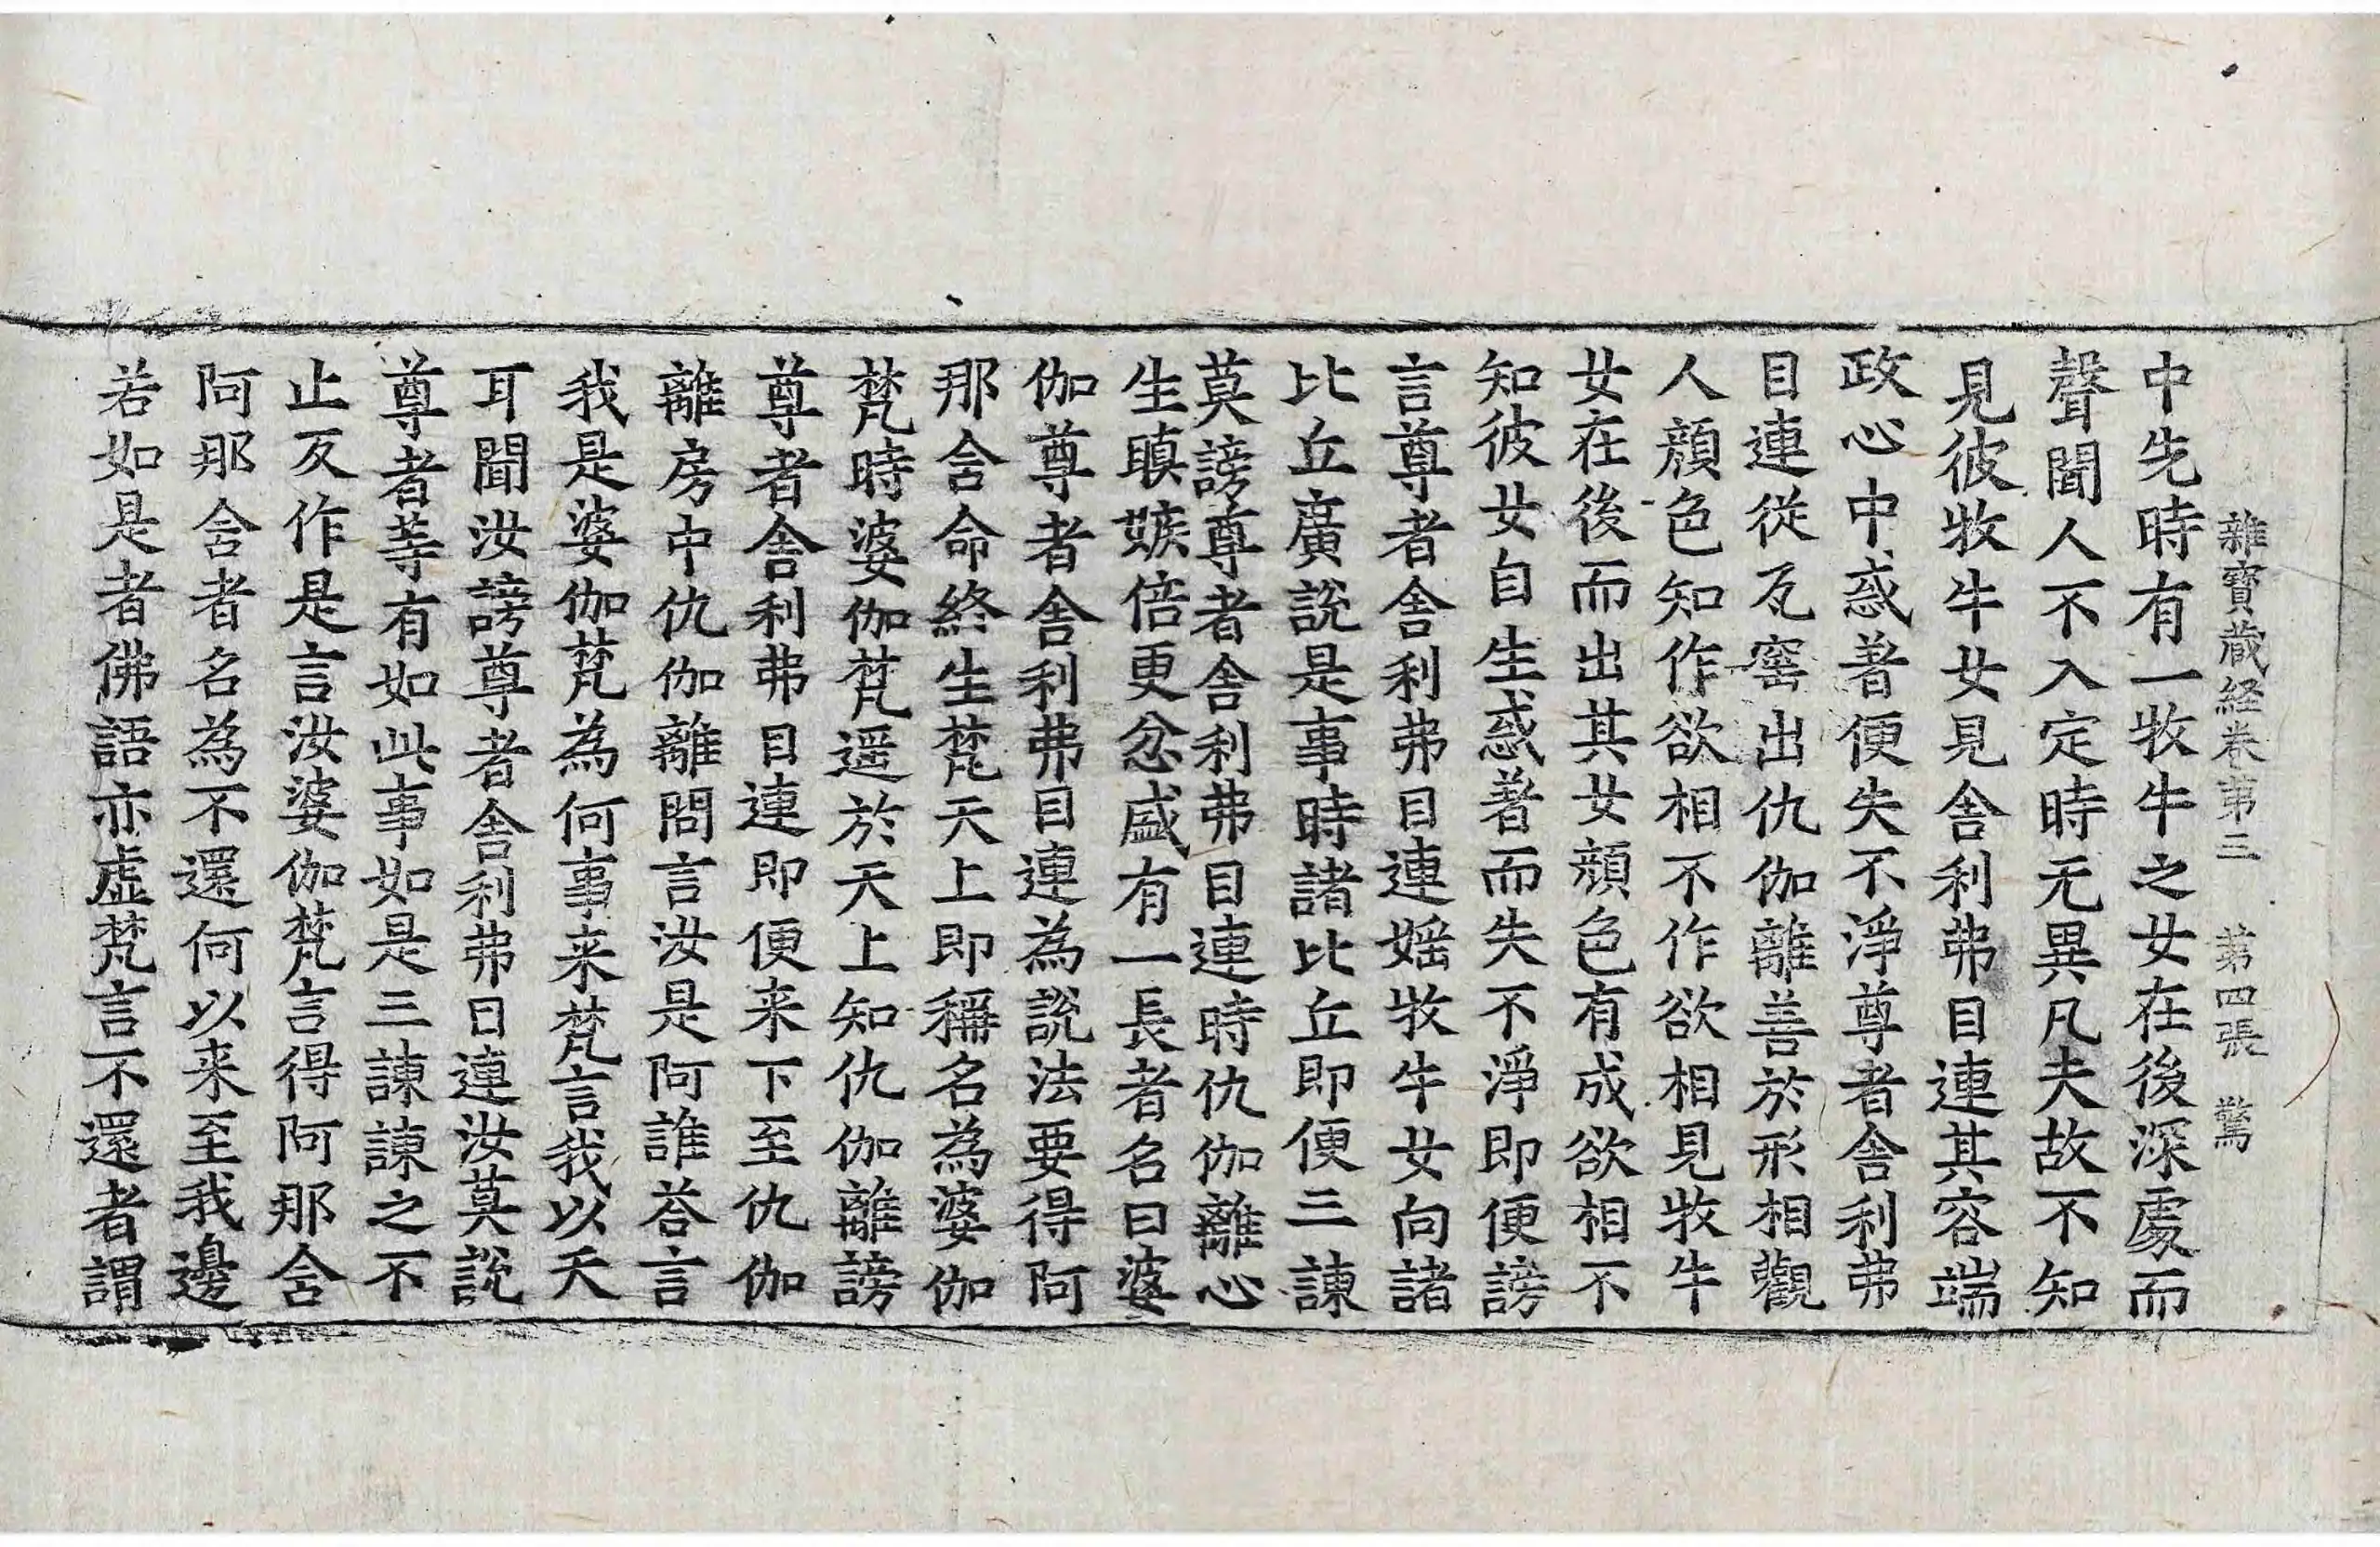 雜寶蔵経卷苐三 苐四張 驚
中先時有一牧牛之女在後深處而
聲聞人不入定時无異凡夫故不知
見彼牧牛女見舍利弗目連其容端
政心中惑著便失不淨尊者舍利弗
目連從瓦窑出仇伽離善於形相觀
人顏色知作欲相不作欲相見牧牛
女在後而出其女顏色有成欲相不
知彼女自生惑著而失不淨即便謗
言尊者舍利弗目連婬牧牛女向諸
比丘廣說是事時諸比丘即便三諫
莫謗尊者舍利弗目連時仇伽離心
生瞋嫉倍更忿盛有一長者名曰婆
伽尊者舍利弗目連為說法要得阿
那含命終生梵天上即稱名為婆伽
梵時婆伽梵遥於天上知仇伽離謗
尊者舍利弗目連即便来下至仇伽
離房中仇伽離問言汝是阿誰荅言
我是婆伽梵為何事来梵言我以天
耳聞汝謗尊者舍利弗目連汝莫說
尊者等有如此事如是三諫諫之不
止反作是言汝婆伽梵言得阿那含
阿那含者名為不還何以来至我邊
若如是者佛語亦虛梵言不還者謂